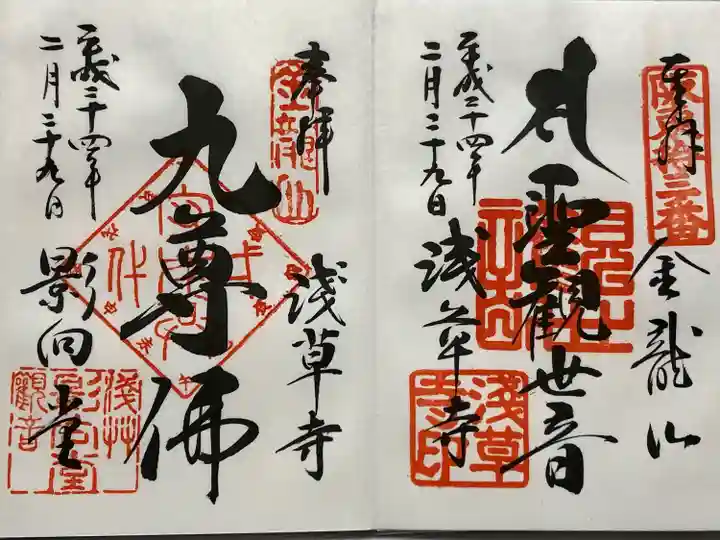 坂東拾三番
奉拝
金龍山
聖観世音
浅草寺
平成二十四年
二月二十九日
淺草
寺印
金龍山
奉拝
淺草寺
九尊佛
平成二十四年
二月二十九日
影向堂
淺艸
影向堂
觀音